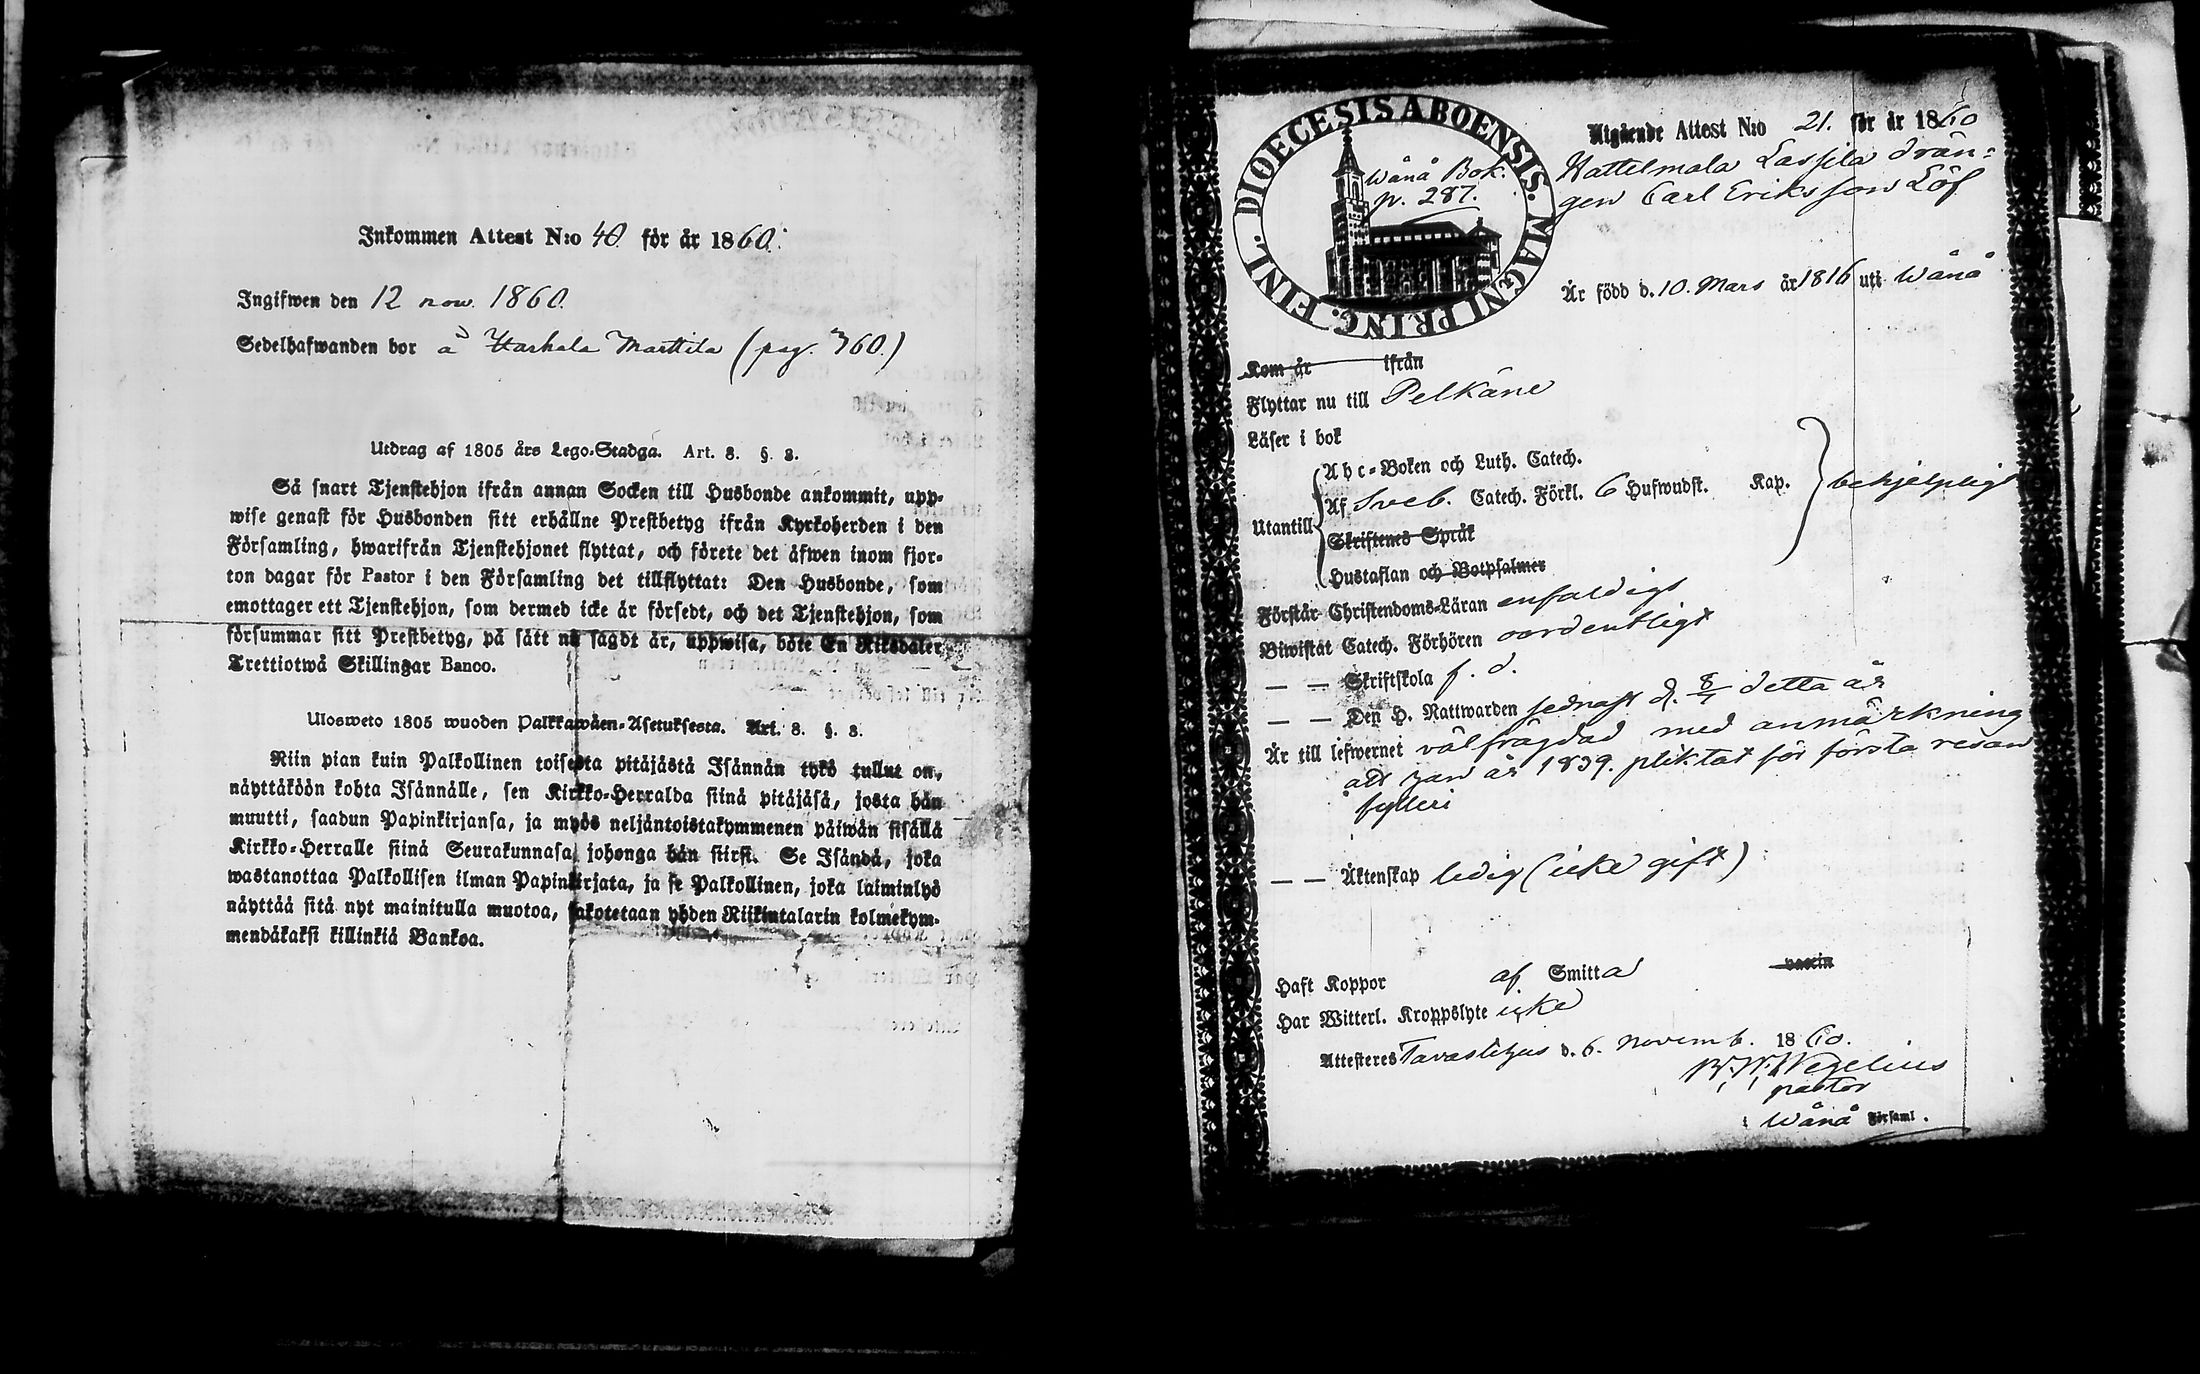 Inkommen Attest N:o 40 för år 1860.
Ingifwen den 12 nov. 1860.
Sedelhafwanden bor å Harhala Marttila (pag. 360.)
Utdrag af 1805 års Lego-Stadga. Art. 8. §. 3.
Så snart Tjenstehjon ifrån annan Socken till Husbonde ankommit, upp-
wise genast för Husbonden sitt erhållne Prestbetyg ifrån Kyrkoherden i den
Församling, hwarifrån Tjenstehjonet flyttat, och förete det äfwen inom fjor-
ton dagar för Pastor i den Församling det tillflyttat: Den Husbonde, som
emottager ett Tjenstehjon, som dermed icke är försedt, och det Tjenstehjon, som
försummar sitt Prestbetyg, på sätt nu sagdt är, uppwisa, böte En Riksdaler
Trettiotwå Skillingar Banco.
Ulosweto 1805 wuoden Palkkawäen-Asetuksesta. Art. 8. §. 3.
Niin pian kuin Palkollinen toisesta pitäjästä Isännän tykö tullut on,
näyttäköön kohta Isännälle, sen Kirkko-Herralda siinä pitäjäsä, josta hän
muutti, saadun Papinkirjansa, ja myös neljäntoistakymmenen päiwän sisällä
Kirkko-Herralle siinä Seurakunnasa, johonga hän siirsi. Se Isändä, joka
wastanottaa Palkollisen ilman Papinkirjata, ja se Palkollinen, joka laiminlyö
näyttää sitä nyt mainitulla muotoa, sakotetaan yhden Riikintalarin kolmekym-
mendäkaksi killinkiä Bankoa.
DIOECESIS ABOENSIS. MAGNI PRINC. FINL.
Wånå Bok.
p. 287.
Utgående Attest N:o 21. för år 1860
Hattelmala Lassila drän-
gen Carl Eriksson Löf
Är född d. 10. Mars år 1816 uti Wånå
Kom år ifrån
Flyttar nu till Pelkäne
Läser i bok
Utantill
Abc-Boken och Luth. Catech.
Af Sveb. Catech. Förkl. 6 Hufwudst. Kap. behjelpligt
Skriftenes Språk
Hustaflan och Botpsalmer
Förstår Christendoms-Läran enfaldigt
Biwistat Catech. Förhören oordentligt
— — Skriftskola f. d.
— — Den H. Nattwarden sednast d. 8/7 detta år
Är till lefwernet välfrägdad med anmärkning
att han år 1839. pliktat för första resan
fylleri
— — Äktenskap ledig (icke gift)
Haft Koppor af Smitta vaccin
Har Witterl. Kroppslyte icke
Attesteres Tavastehus d. 6. novemb. 1860.
Wegelius
pastor
Wånå Församl.